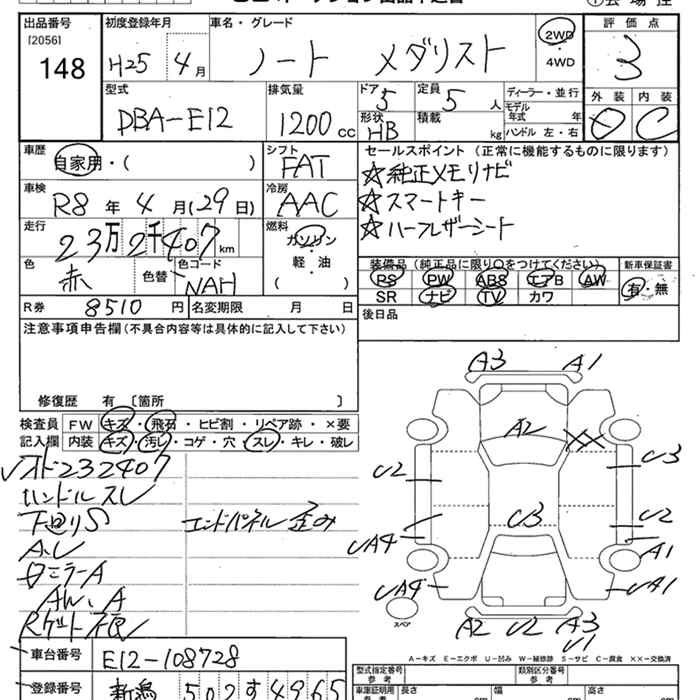 出品番号
[2056]
148
初度登録年月
H25年4月
車名・グレード
ノート メダリスト
2WD
・
4WD
評価点
3
外装 内装
D C
型式
DBA-E12
排気量
1200 cc
ドア 5
形状 HB
定員 5 人
積載 kg
ディーラー・並行
モデル年式 年
ハンドル 左・右
車歴
自家用・( )
シフト
FAT
車検
R8年4月(29日)
冷房
AAC
走行
23万2千407km
燃料
ガソリン
・
軽・油
( )
色
赤
色替
色コード
NAH
R券 8510円
名変期限 月 日
セールスポイント(正常に機能するものに限ります)
☆純正メモリナビ
☆スマートキー
☆ハーフレザーシート
装備品(純正品に限り○をつけてください)
PS PW ABS エアB AW
SR ナビ TV カワ
新車保証書
有・無
後日品
注意事項申告欄(不具合内容等は具体的に記入して下さい)
修復歴 有〔箇所 〕
検査員記入欄
FW キズ・飛石・ヒビ割・リペア跡・×要
内装 キズ・汚レ・コゲ・穴・スレ・キレ・破レ
オド232407
ハンドルスレ
下回りS
エンドパネル歪み
A.U
ミラーA
AW、A
A3 A1
A2
U2 U3
U3 U2
UA4 A1
UA4 UA1
スペア
A2 U2 A3
U1
A-キズ E-エクボ U-凹み W-補修跡 S-サビ C-腐食 ××-交換済
車台番号 E12-108728
登録番号 新潟 502 す 4965
型式指定番号
参考
類別区分番号
参考
車庫証明用
参考
長さ cm
幅 cm
高さ cm